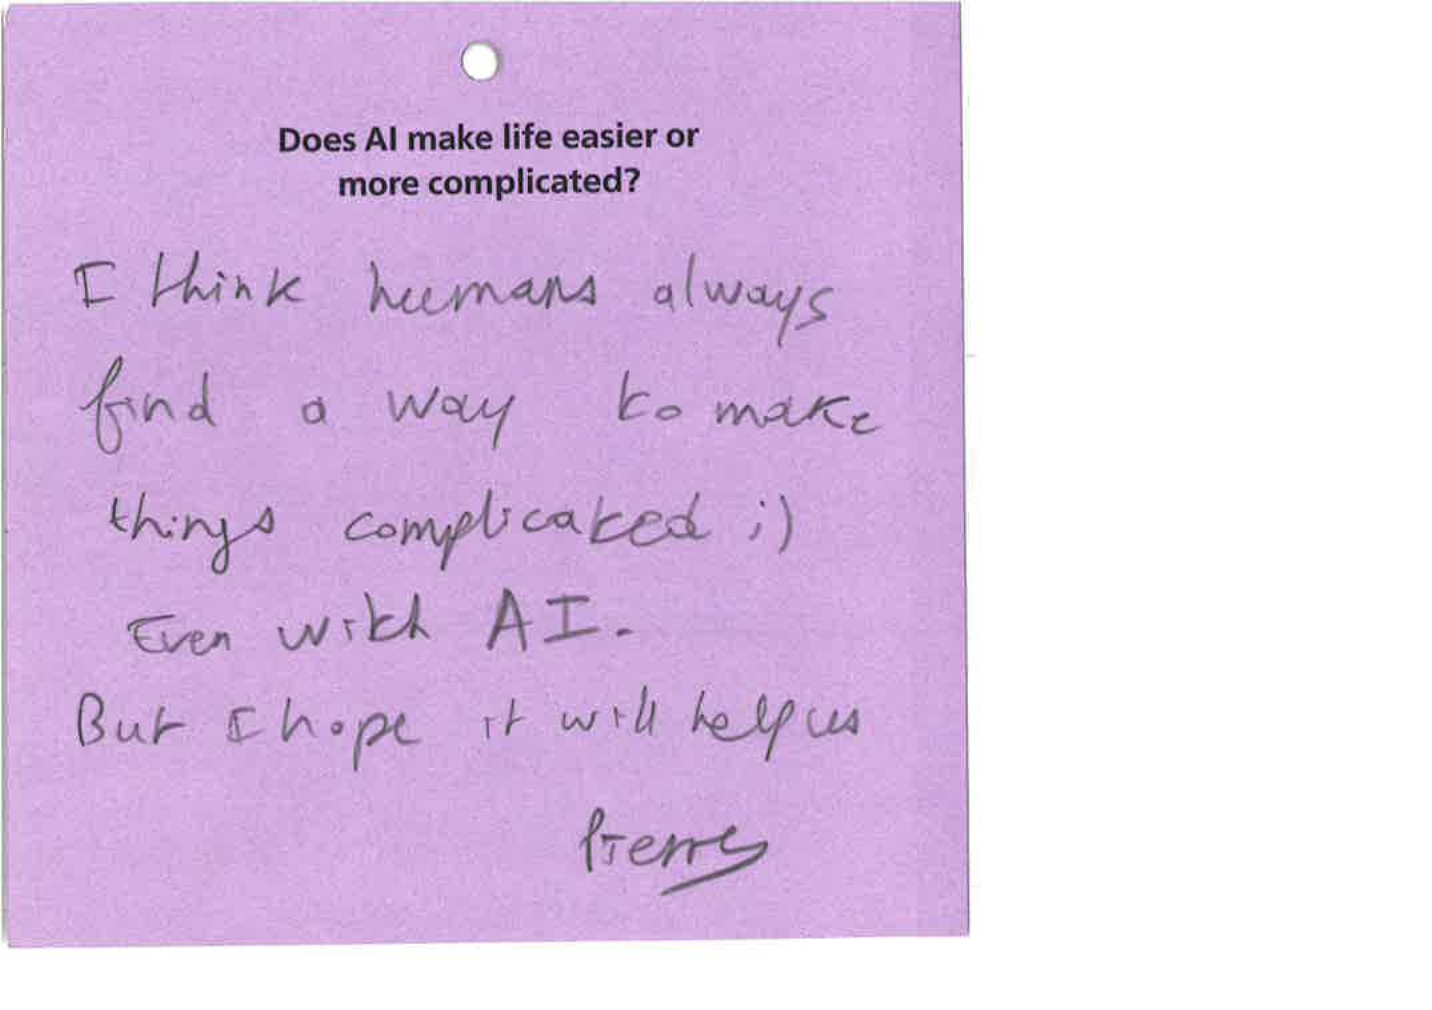 Does AI make life easier or
more complicated?
I think humans always
find a way to make
things complicated ;)
Even with AI.
But I hope it will help us
Pierre